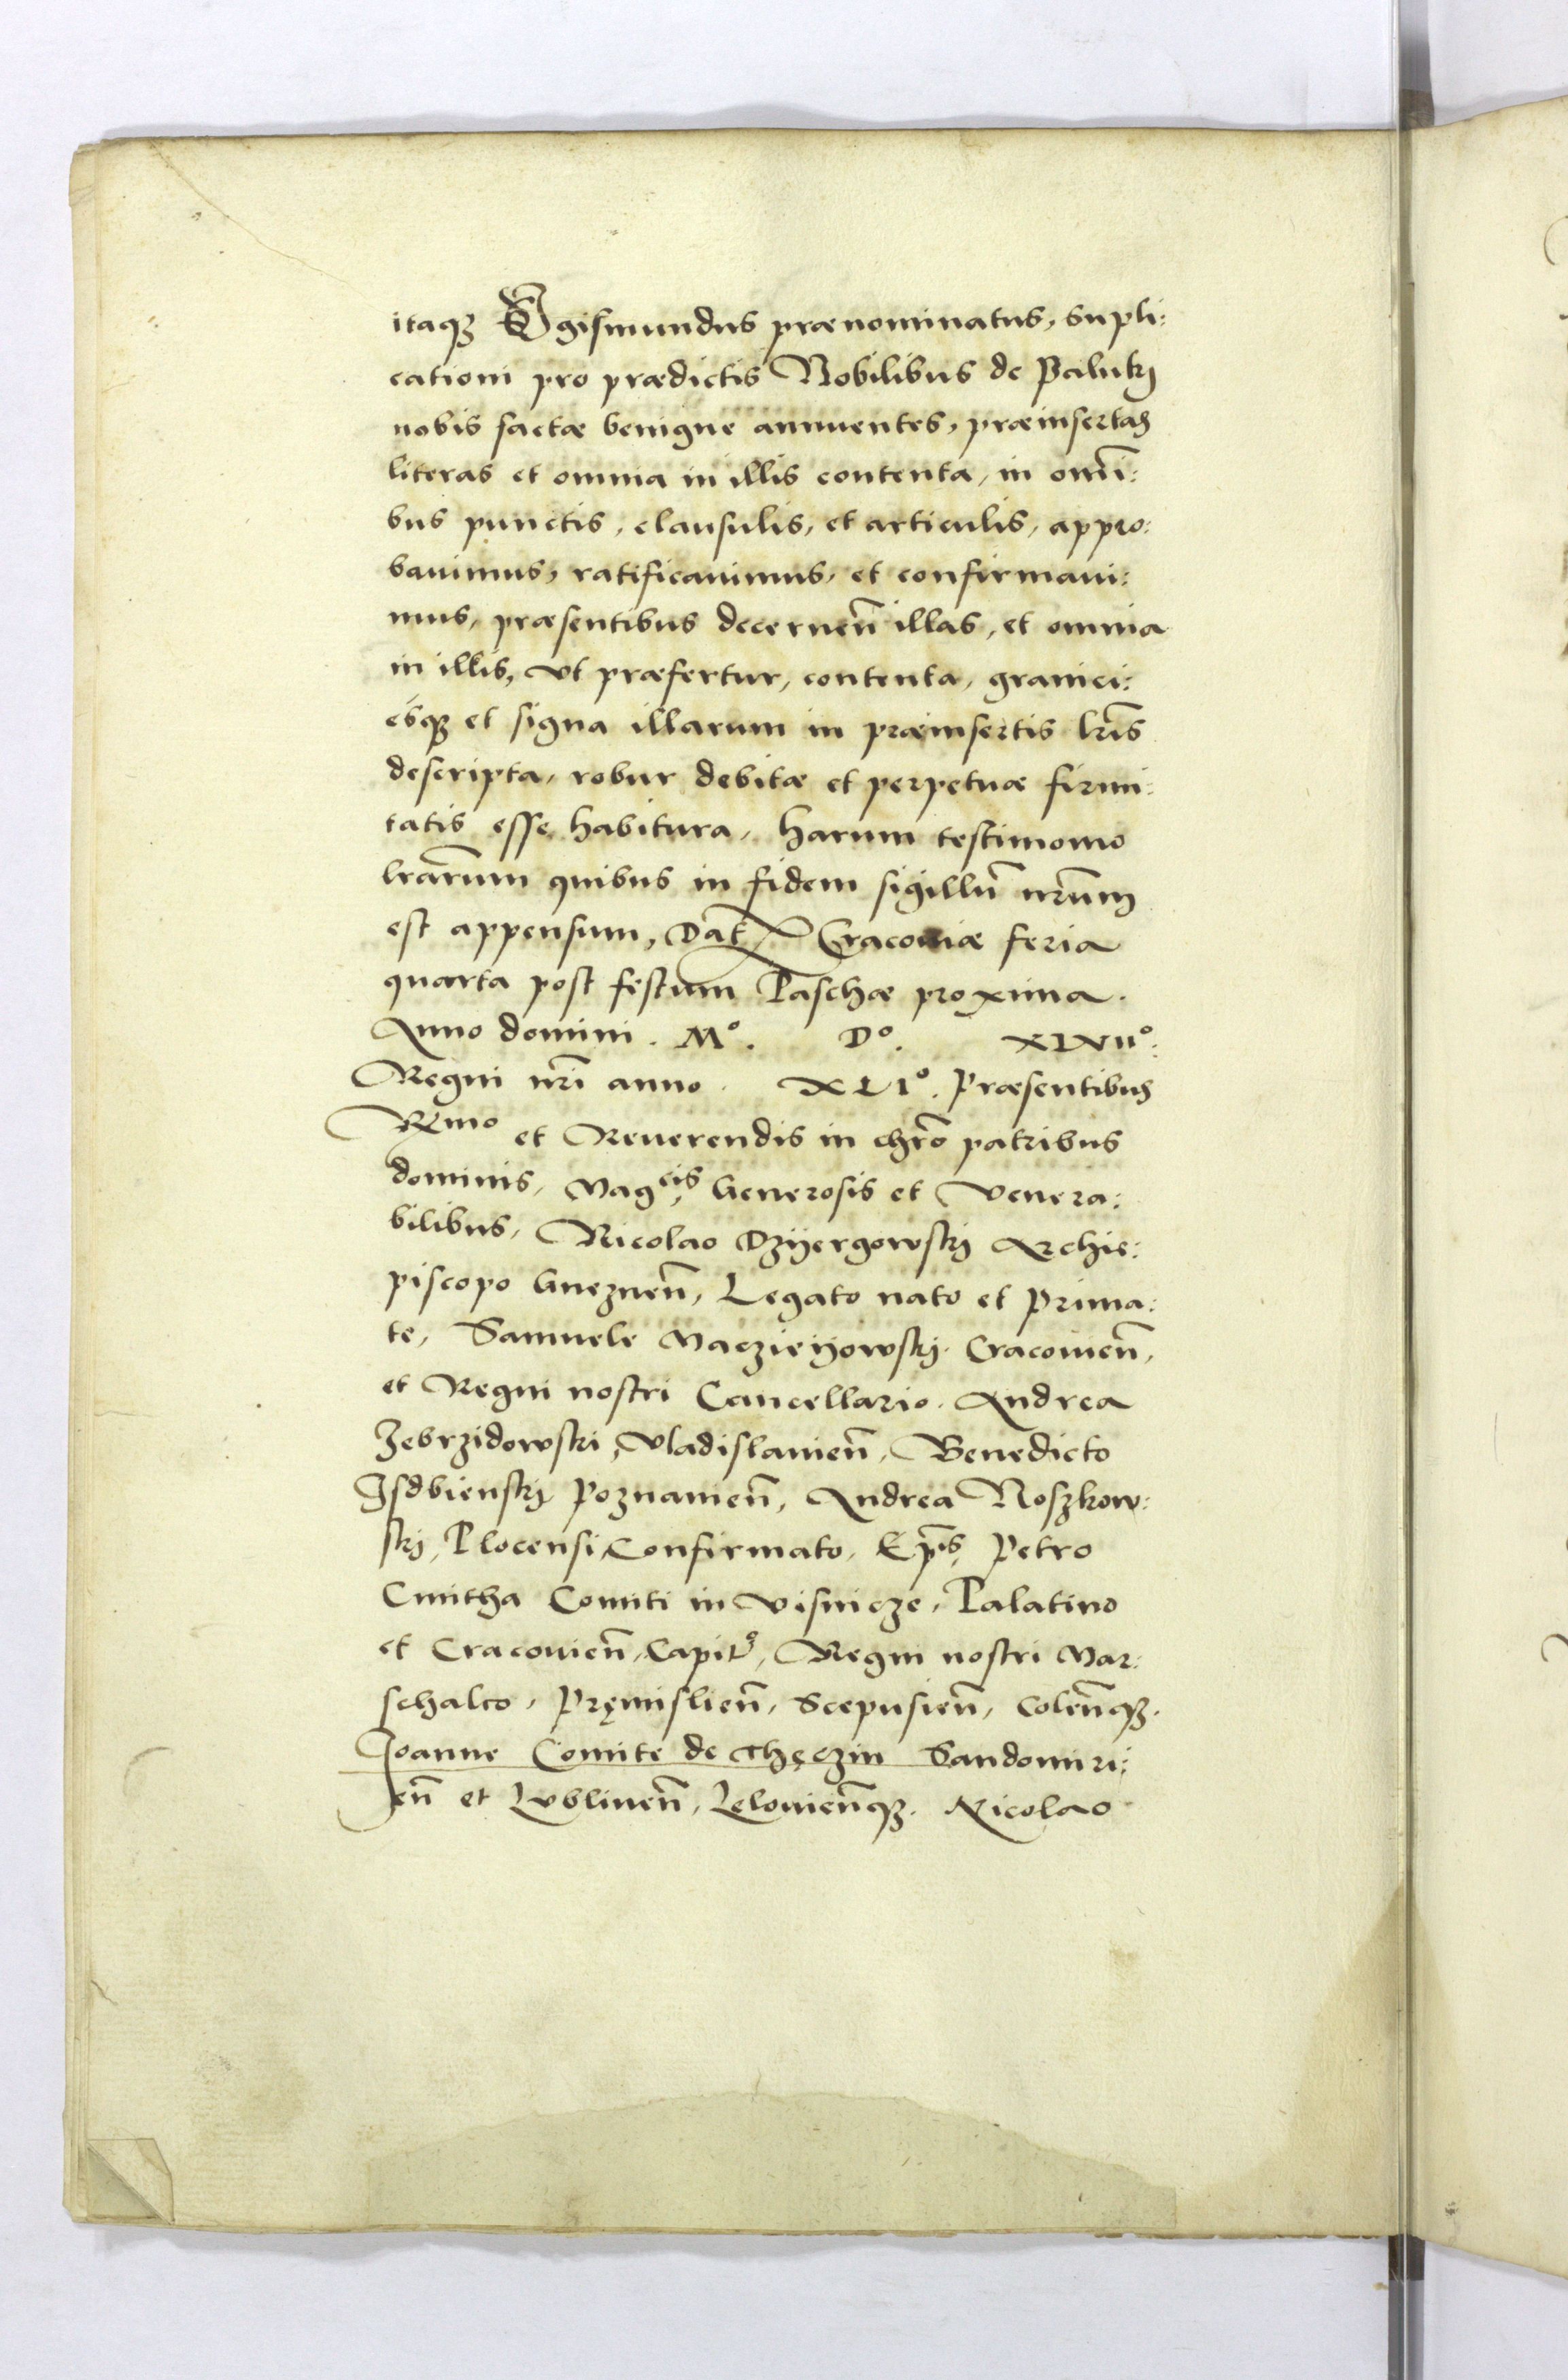 itaqꝫ Sigismundus prænominatus, supli:
cationi pro prædictis Nobilibus de Paluky
nobis factæ benigne annuentes, præinsertas
literas et omnia in illis contenta, in om̃i:
bus punctis, clausulis, et articulis, appro:
bauimus, ratificauimus, et confirmaui:
mus, præsentibus decernen̄ illas, et omnia
in illis, vt præfertur, contenta, granici:
esqꝫ et signa illarum in præinsertis lr̃is
descripta, robur debitæ et perpetuæ firmi:
tatis esse habitura, harum testimonio
lr̃arum quibus in fidem sigillū nr̃um
est appensum, Dat̃ Cracouiæ feria
quarta post festum Paschæ proxima.
Anno domini. Mº. Dº. XLVIIº:
Regni nr̃i anno. XLIº. Præsentibus
Rmo et Reuerendis in chr̃o patribus
dominis, Magcis, Generosis et Venera:
bilibus, Nicolao Dzÿergowskÿ Archie:
piscopo Gneznen̄, Legato nato et Prima:
te, Samuele Macziejowskÿ. Cracouien̄,
et Regni nostri Cancellario. Andrea
Zebrzidowski, Vladislauien̄, Benedicto
Isdbienskÿ Poznanien̄, Andrea Noszkow:
skÿ, Plocensi Confirmato, Ep̄is, Petro
Cmitha Comiti in Visnicze, Palatino
et Cracouien̄, Capitº, Regni nostri Mar:
schalco, Pręmislien̄, Scepusien̄, Colen̄qꝫ.
Joanne Comite de Thęczin Sandomiri:
en̄ et Lublinen̄, Lelouien̄qꝫ. Nicolao